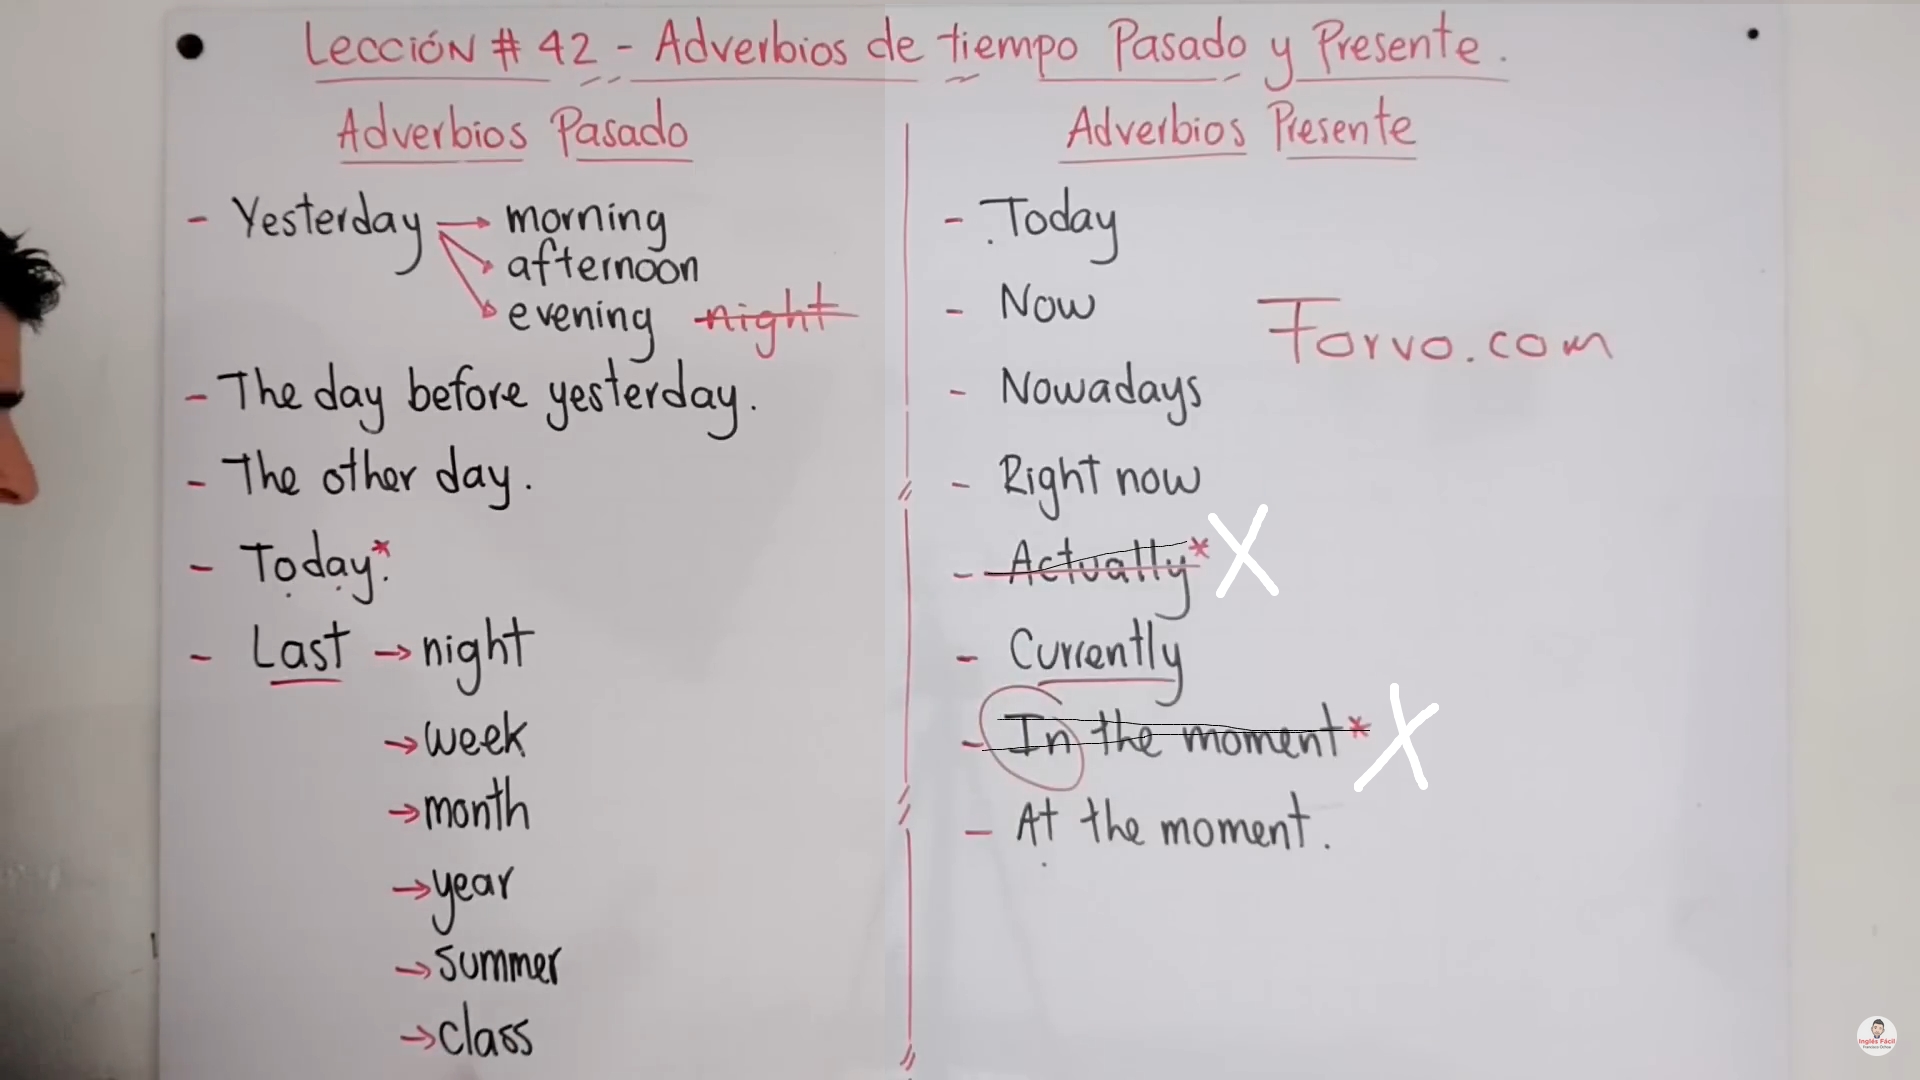 Lección # 42 - Adverbios de tiempo Pasado y Presente.
Adverbios Pasado
- Yesterday → morning
→ afternoon
→ evening night
- The day before yesterday.
- The other day.
- Today*.
- Last → night
→ week
→ month
→ year
→ summer
→ class
Adverbios Presente
- Today
- Now
Forvo.com
- Nowadays
- Right now
- Actually* X
- Currently
- In the moment* X
- At the moment.
Inglés Fácil